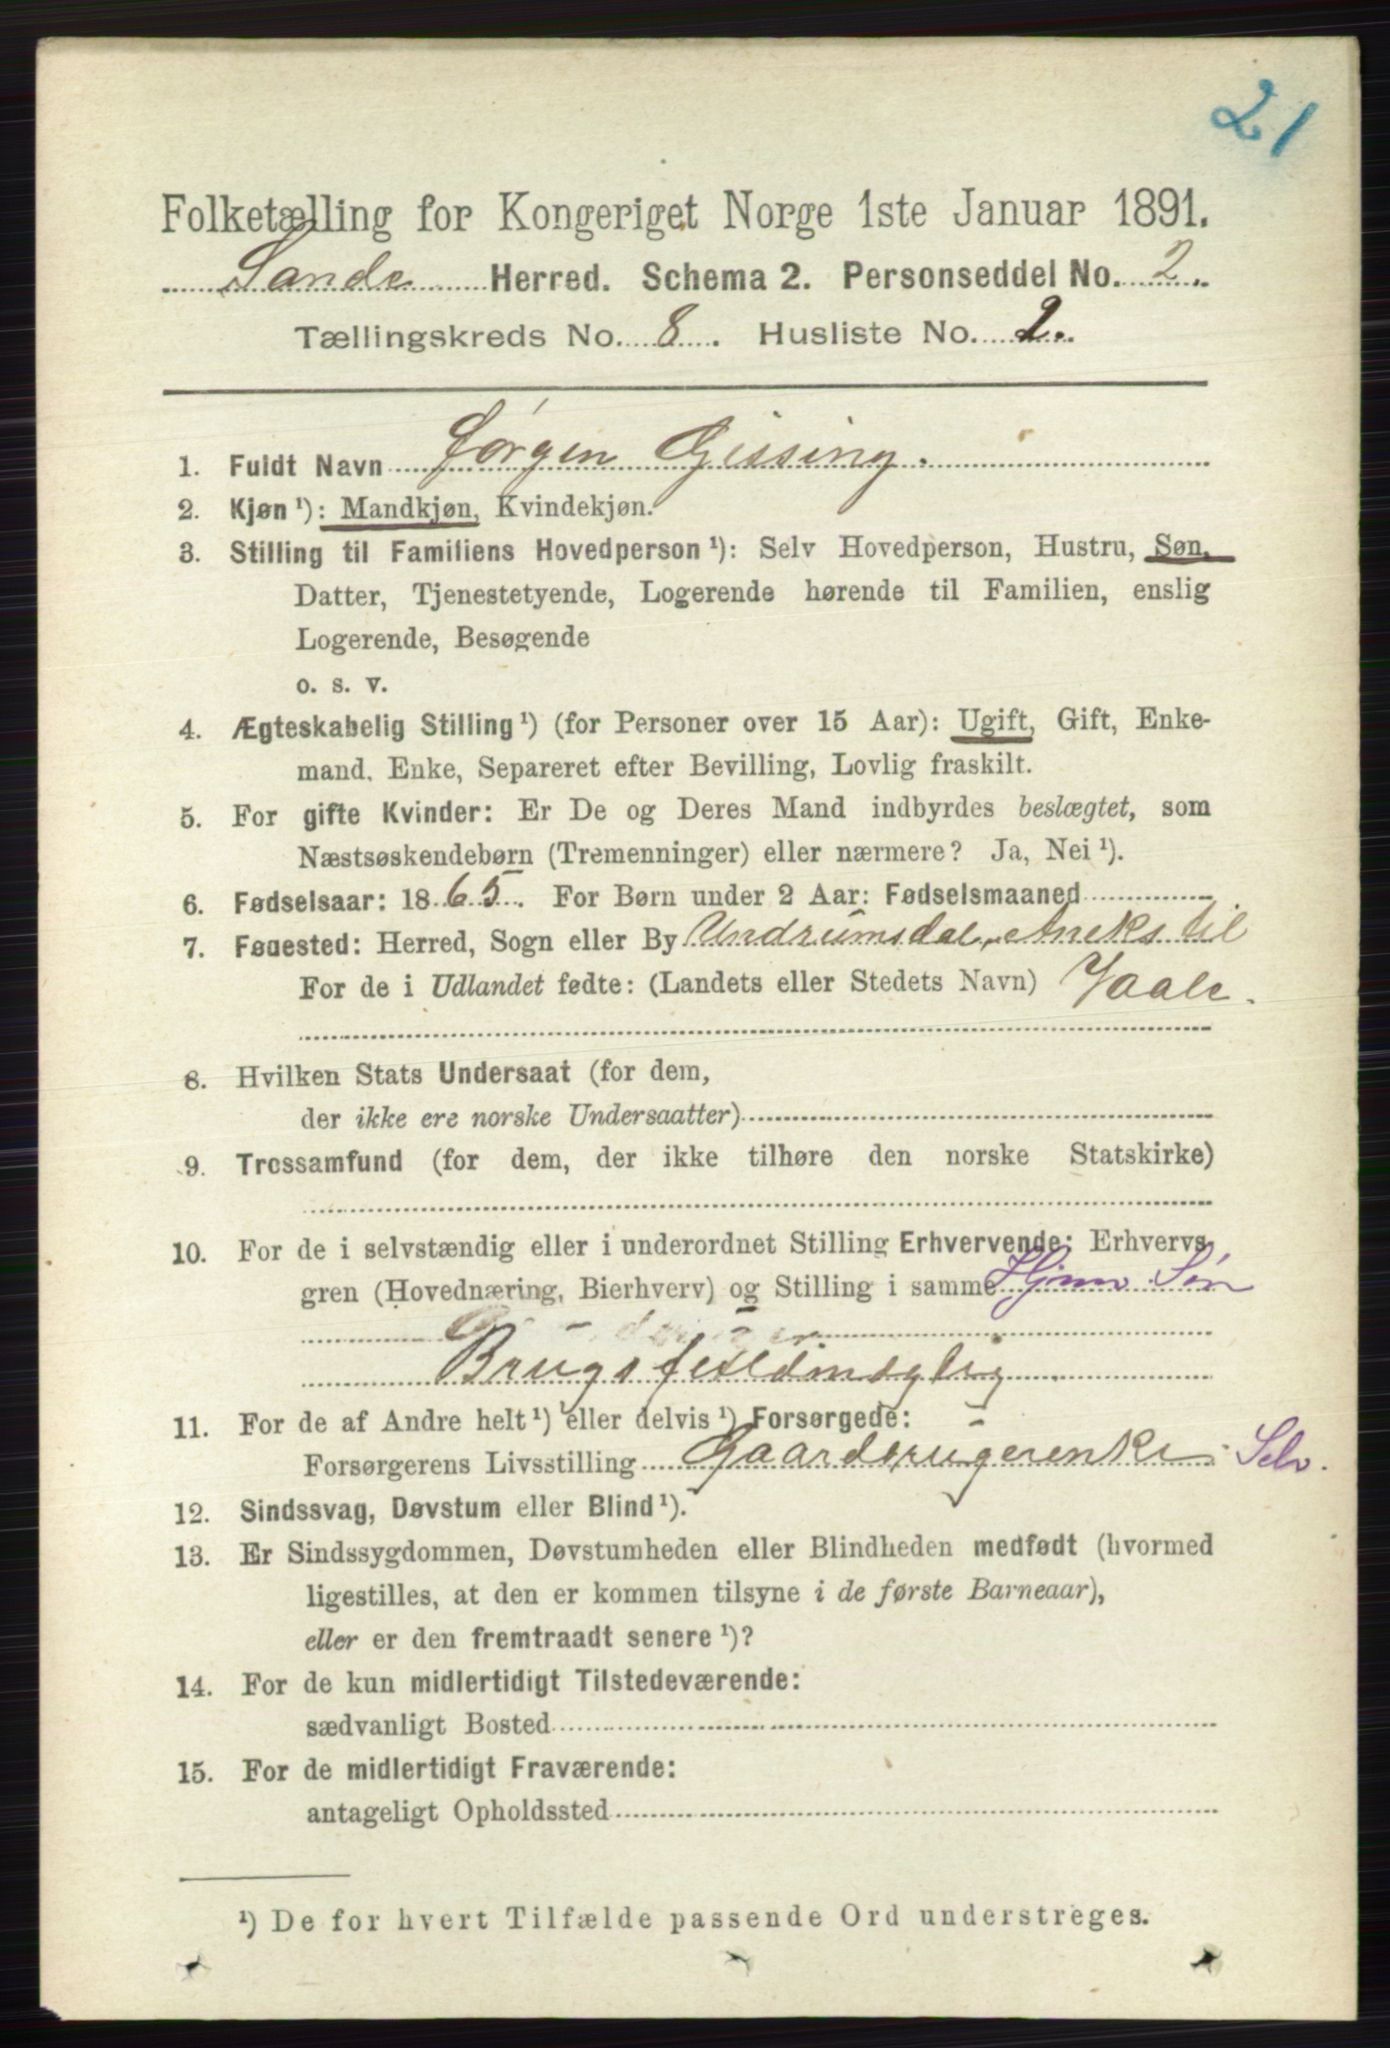 21
Folketælling for Kongeriget Norge 1ste Januar 1891.
Sande Herred. Schema 2. Personseddel No. 2.
Tællingskreds No. 8. Husliste No. 2.
1. Fuldt Navn Jørgen Gissing.
2. Kjøn ¹): Mandkjøn, Kvindekjøn.
3. Stilling til Familiens Hovedperson ¹): Selv Hovedperson, Hustru, Søn,
Datter, Tjenestetyende, Logerende hørende til Familien, enslig
Logerende, Besøgende
o. s. v.
4. Ægteskabelig Stilling ¹) (for Personer over 15 Aar): Ugift, Gift, Enke-
mand, Enke, Separeret efter Bevilling, Lovlig fraskilt.
5. For gifte Kvinder: Er De og Deres Mand indbyrdes beslægtet, som
Næstsøskendebørn (Tremenninger) eller nærmere? Ja, Nei ¹).
6. Fødselsaar: 1865. For Børn under 2 Aar: Fødselsmaaned
7. Fødested: Herred, Sogn eller By Undrumsdal, Aneks til
For de i Udlandet fødte: (Landets eller Stedets Navn) Vaale.
8. Hvilken Stats Undersaat (for dem,
der ikke ere norske Undersaatter)
9. Trossamfund (for dem, der ikke tilhøre den norske Statskirke)
10. For de i selvstændig eller i underordnet Stilling Erhvervende: Erhvervs-
gren (Hovednæring, Bierhverv) og Stilling i samme Hjmv. Søn
Brugsfuldmægtig
11. For de af Andre helt ¹) eller delvis ¹) Forsørgede:
Forsørgerens Livsstilling Gaardbrugerenke. Selv.
12. Sindssvag, Døvstum eller Blind ¹).
13. Er Sindssygdommen, Døvstumheden eller Blindheden medfødt (hvormed
ligestilles, at den er kommen tilsyne i de første Barneaar),
eller er den fremtraadt senere ¹)?
14. For de kun midlertidigt Tilstedeværende:
sædvanligt Bosted
15. For de midlertidigt Fraværende:
antageligt Opholdssted
¹) De for hvert Tilfælde passende Ord understreges.